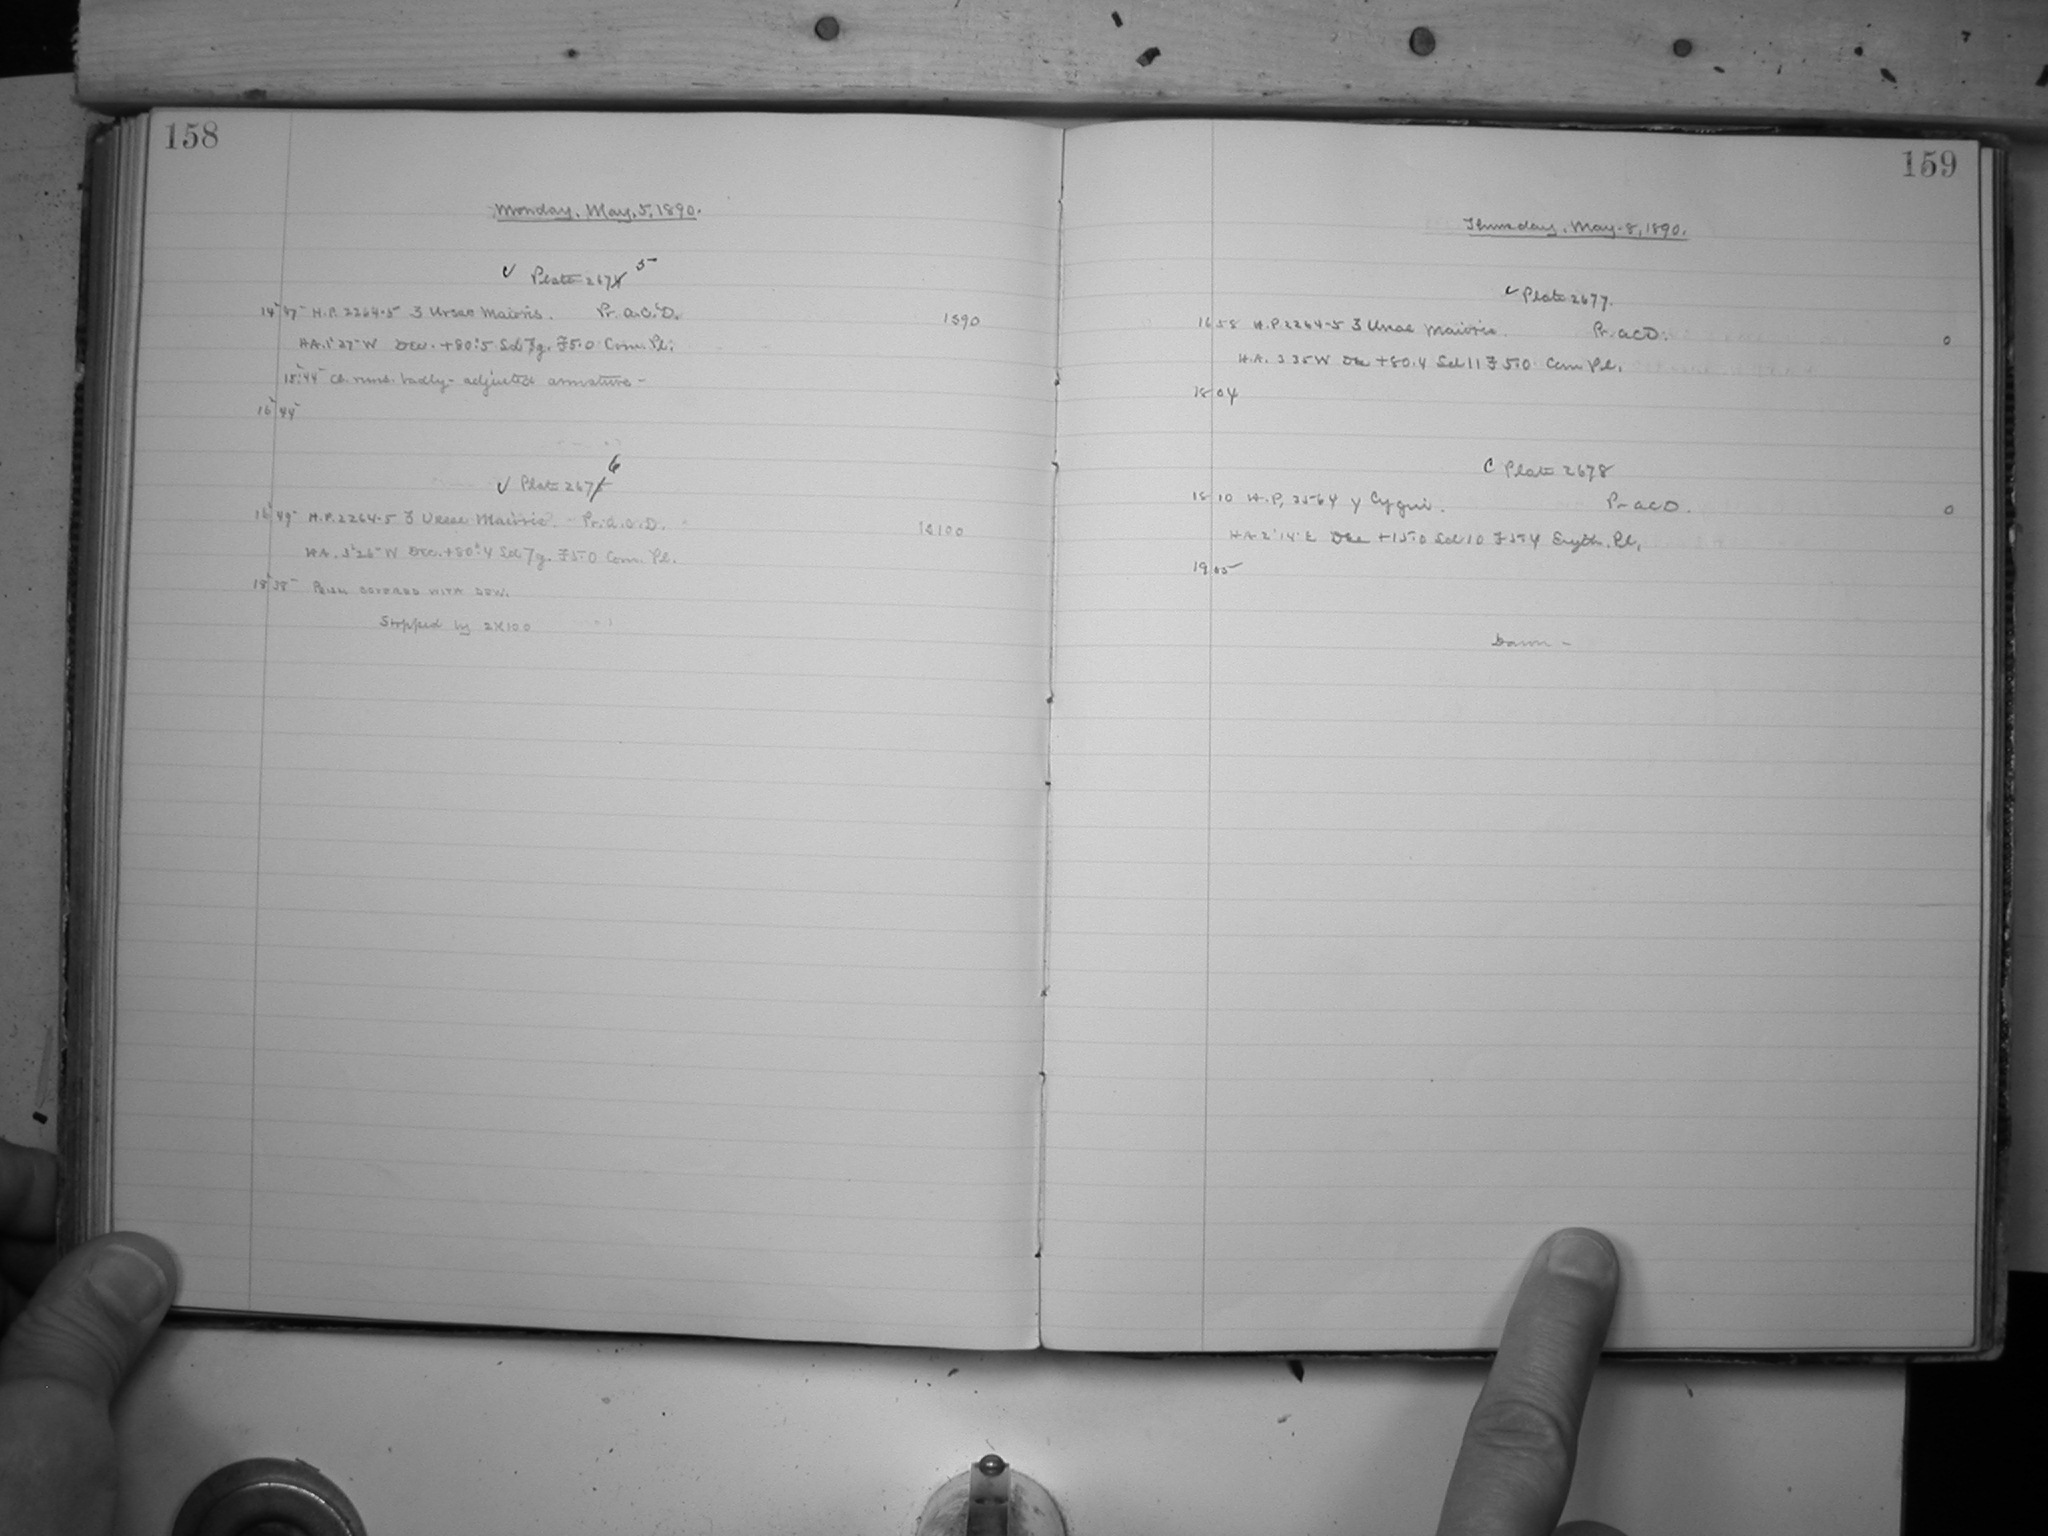 158
Monday, May, 5, 1890.
✓ Plate 2674 5
14 47 H.P. 2264-5 ζ Ursae Maioris. Pr. a.c.D. 1S90
H.A. 1 27 W Dec. +80.5 Scl 7g. F5.0 Com. Pl.
15 44 Cl. runs badly - adjusted armature -
16 44
✓ Plate 2675 6
16 49 H.P. 2264-5 ζ Ursae Maioris. Pr. a.c.D. 1S100
H.A. 3 26 W Dec. +80.4 Scl 7g. F5.0 Com. Pl.
18 38 COVERED WITH DEW.
Stopped by 2S100
159
Thursday, May 8, 1890.
✓ Plate 2677.
16 58 H.P. 2264-5 ζ Ursae Maioris. Pr. acD. 0
H.A. 3 35 W Dec +80.4 Scl 11 F 5.0 Com Pl.
18 04
C Plate 2678
18 10 H.P. 3564 γ Cygni. Pr acD. 0
HA 2 14 E Dec +15.0 Scl 10 F 5.4 Eryth. Pl.
19 05
Dawn -